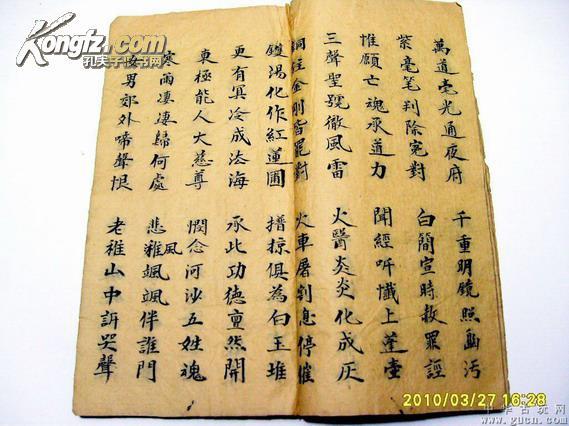 萬道毫光通夜府 千重明鏡照幽污
紫毫笔判除冤對 白簡宣時赦罪誣
惟願亡魂承道力 聞經听懺上蓬壺
三聲聖號徹風雷 火醫炎炎化成灰
銅柱金剛皆罷對 火車屠割息停催
鑊湯化作紅蓮圃 搢掠俱為白玉堆
更有冥冷成法海 承此功德亶然開
東極能人大慈尊 憫念河沙五姓魂
寒雨凄凄歸何處 悲雅風颯颯伴誰門
男郊外啼聲恨 老稚山中訴哭聲
Kongfz.com
孔夫子旧书网
2010/03/27 16:28